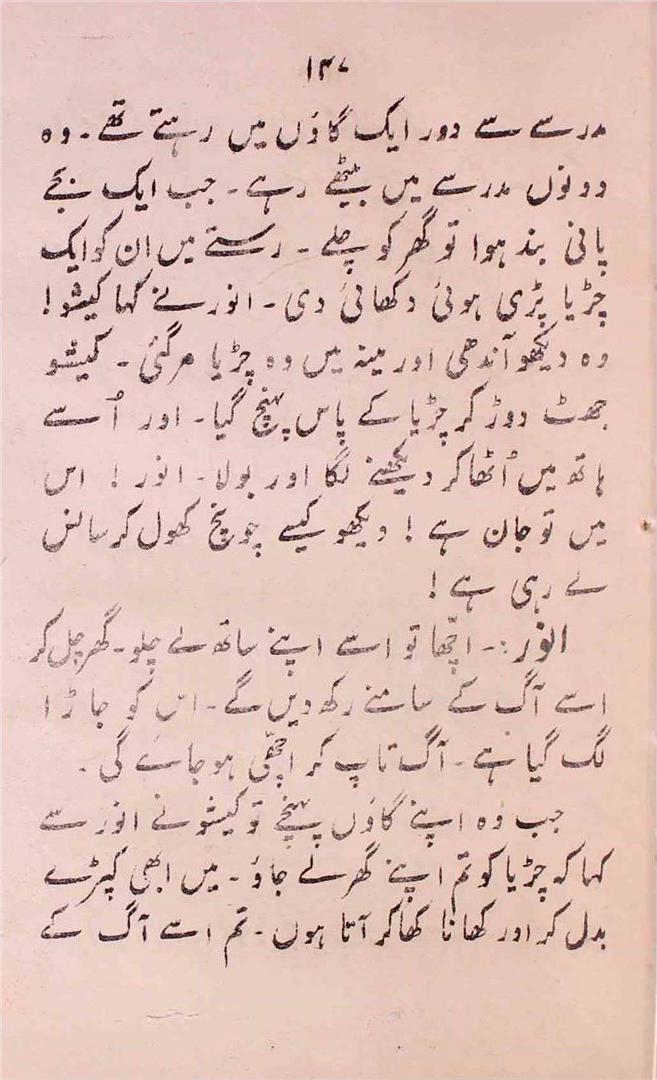 ۱۴۷
مدرسے سے دور ایک گاؤں میں رہتے تھے۔ وہ
دونوں مدرسے میں بیٹھے رہے۔ جب ایک بجے
پانی بند ہوا تو گھر کو چلے۔ رستے میں ان کو ایک
چڑیا پڑی ہوئی دکھائی دی۔ انور نے کہا کیشو!
وہ دیکھو آندھی اور مینہ میں وہ چڑیا مر گئی۔ کیشو
جھٹ دوڑ کر چڑیا کے پاس پہنچ گیا۔ اور اُسے
ہاتھ میں اُٹھا کر دیکھنے لگا اور بولا۔ انور! اس
میں تو جان ہے! دیکھو کیسے چونچ کھول کر سانس
لے رہی ہے!
انور:۔ اچھّا تو اسے اپنے ساتھ لے چلو۔ گھر چل کر
اسے آگ کے سامنے رکھ دیں گے۔ اس کو جاڑا
لگ گیا ہے۔ آگ تاپ کر اچھّی ہو جائے گی۔
جب وُہ اپنے گاؤں پہنچے تو کیشو نے انور سے
کہا کہ چڑیا کو تم اپنے گھر لے جاؤ۔ میں ابھی کپڑے
بدل کر اور کھانا کھا کر آتا ہوں۔ تم اسے آگ کے